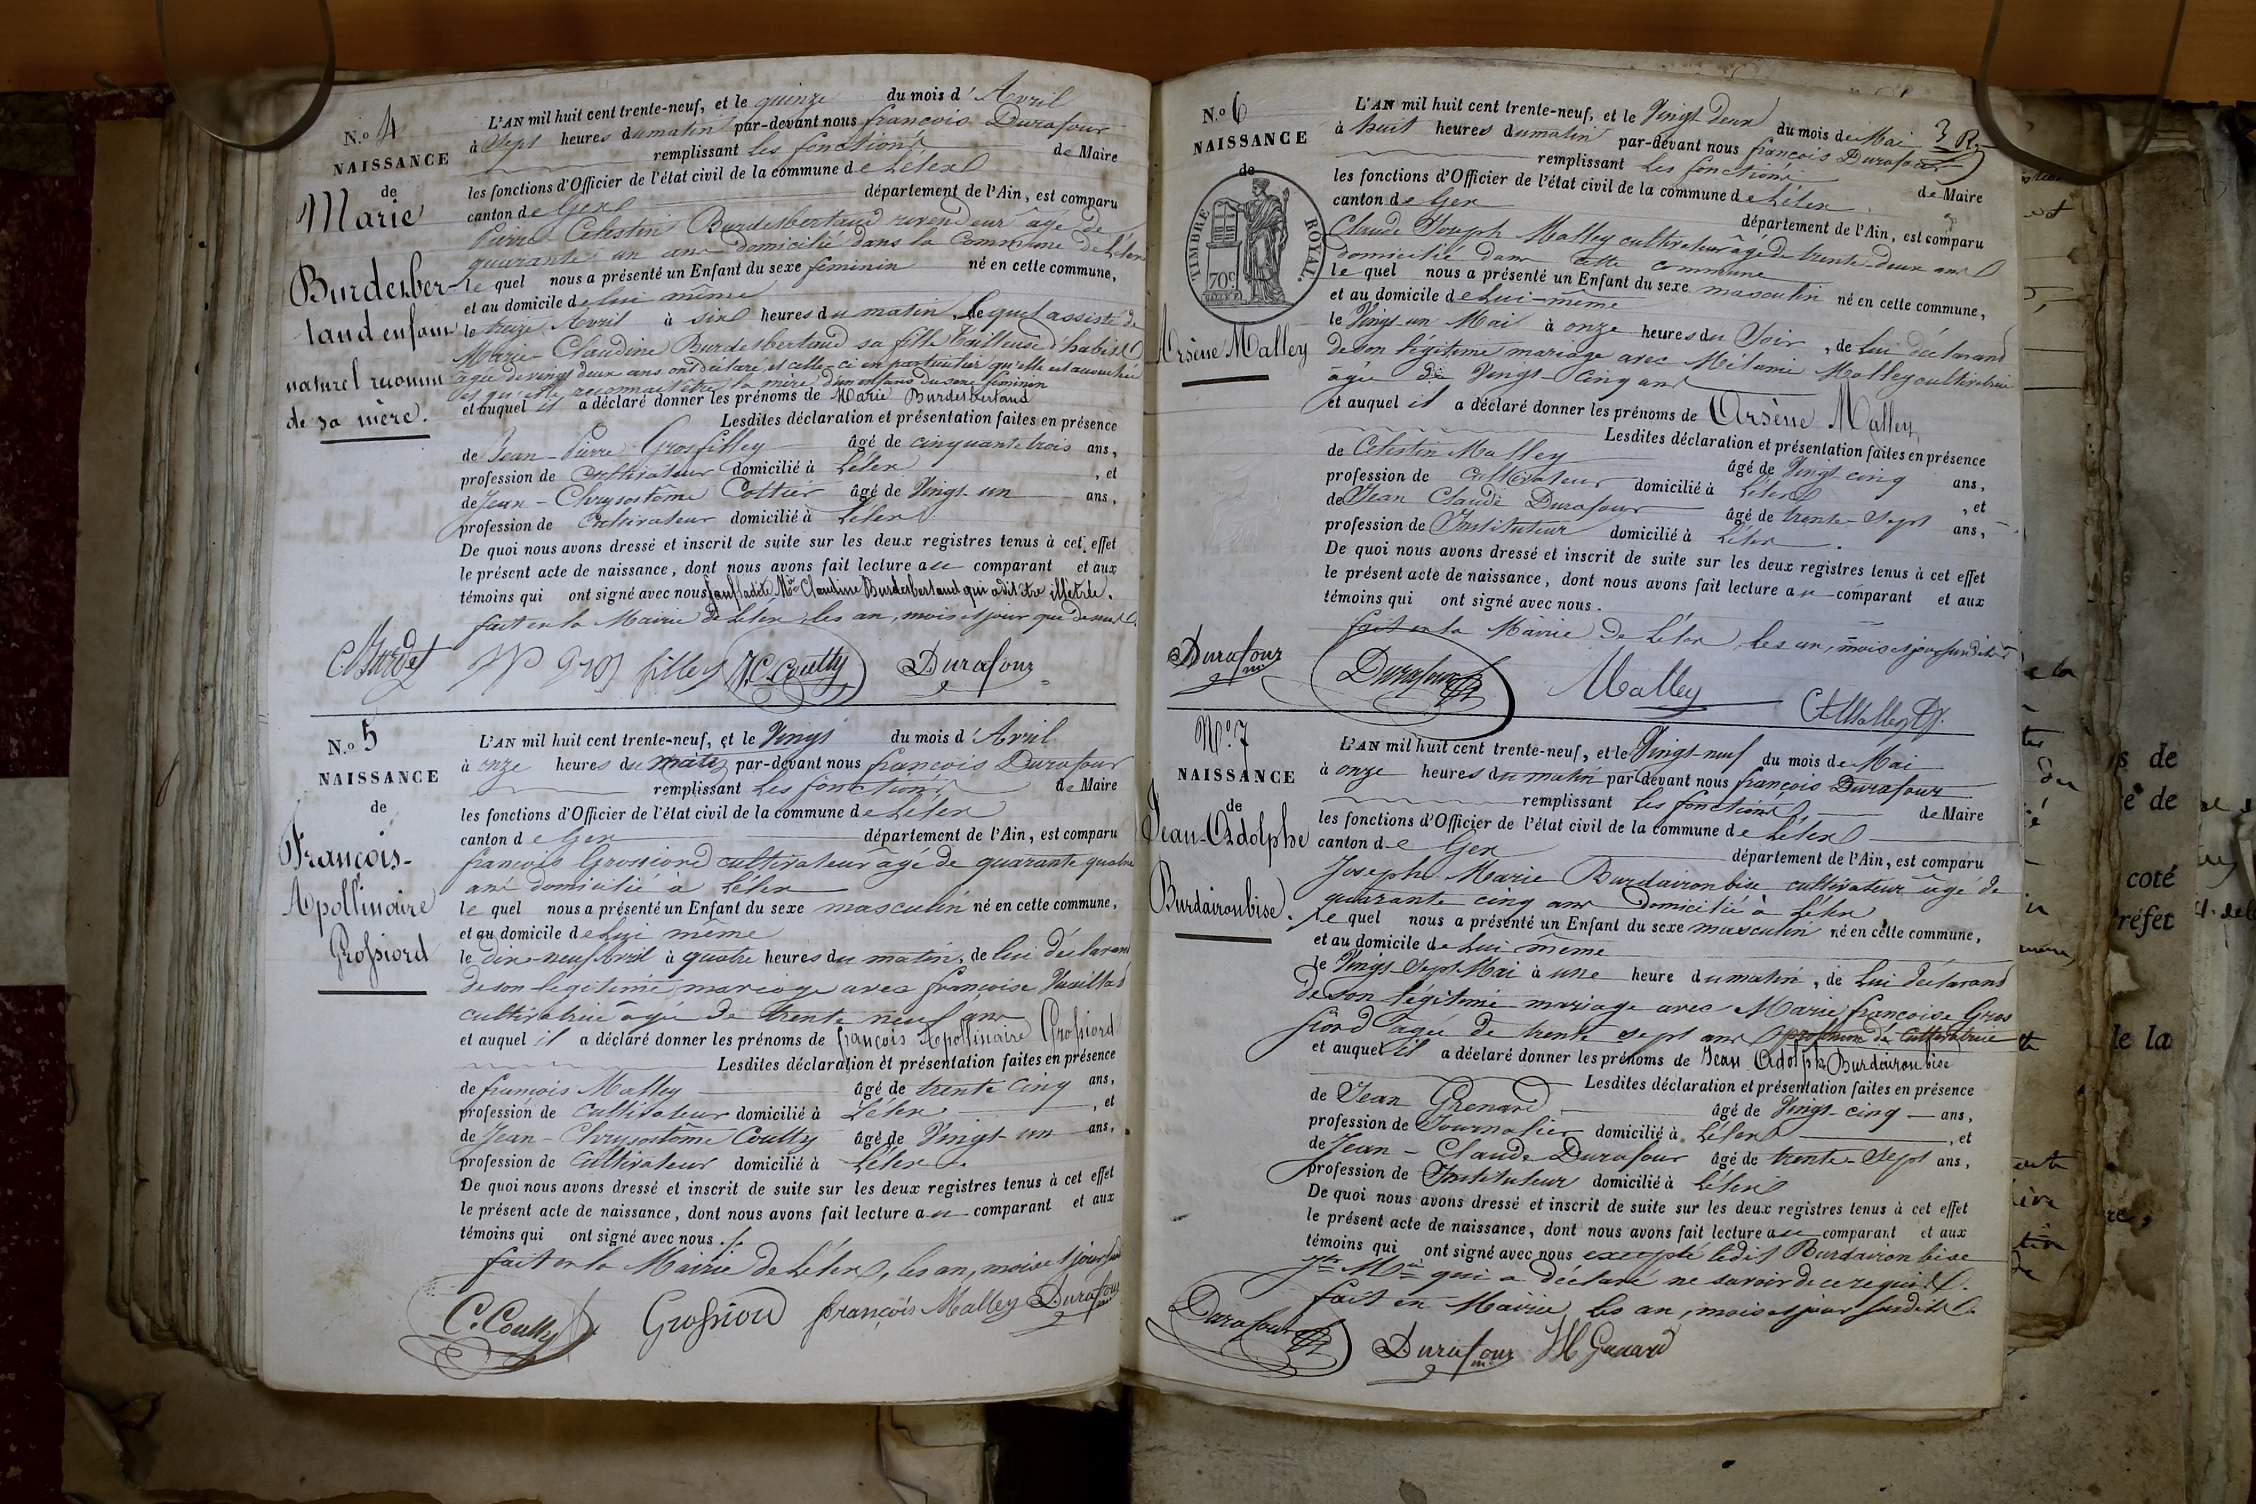 N.o 4
NAISSANCE
de
Marie
Burdesber-
taud enfant
naturel reconnu
de sa mère.
L'AN mil huit cent trente-neuf, et le quinze du mois d'Avril
à Sept heures du matin par-devant nous françois Durafour
remplissant les fonctions de Maire
les fonctions d'Officier de l'état civil de la commune de Lélex
canton de Gex département de l'Ain, est comparu
Pierre Célestin Burdesbertaud revendeur âgé de
quarante un ans domicilié dans la Commune de Lélex
le quel nous a présenté un Enfant du sexe feminin né en cette commune,
et au domicile de lui même
le treize Avril à six heures du matin, le quel assisté de
Marie-Claudine Burdesbertaud sa fille tailleuse d'habits
âgée de vingt deux ans ont déclaré, et celle-ci en particulier qu'elle est accouchée
et qu'elle reconnait être la mère d'un enfant du sexe feminin
et auquel il a déclaré donner les prénoms de Marie Burdesbertaud
Lesdites déclaration et présentation faites en présence
de Jean-Pierre Grosfilley âgé de cinquante trois ans,
profession de cultivateur domicilié à Lélex, et
de Jean-Chrysostôme Cottier âgé de Vingt-un ans,
profession de cultivateur domicilié à Lélex
De quoi nous avons dressé et inscrit de suite sur les deux registres tenus à cet effet
le présent acte de naissance, dont nous avons fait lecture au comparant et aux
témoins qui ont signé avec nous sauf ladite Mie Claudine Burdesbertaud qui a dit être illétrée.
fait en la Mairie de Lélex, les an, mois et jour que dessus
C. Burdet J P Gros filley J. C. Coutty Durafour
N.o 5
NAISSANCE
de
François-
Apollinaire
Grossiord
L'AN mil huit cent trente-neuf, et le Vingt du mois d'Avril
à onze heures du matin par-devant nous françois Durafour
remplissant les fonctions de Maire
les fonctions d'Officier de l'état civil de la commune de Lélex
canton de Gex département de l'Ain, est comparu
françois Grossiord cultivateur âgé de quarante quatre
ans domicilié à Lélex
le quel nous a présenté un Enfant du sexe masculin né en cette commune,
et au domicile de lui même
le dix-neuf Avril à quatre heures du matin, de lui déclarant
de son légitime mariage avec françoise
cultivatrice âgée de trente neuf ans
et auquel il a déclaré donner les prénoms de françois Apollinaire Grossiord
Lesdites déclaration et présentation faites en présence
de françois Malley âgé de trente cinq ans,
profession de cultivateur domicilié à Lélex, et
de Jean-Chrysostôme Coutty âgé de Vingt-un ans,
profession de cultivateur domicilié à Lélex
De quoi nous avons dressé et inscrit de suite sur les deux registres tenus à cet effet
le présent acte de naissance, dont nous avons fait lecture au comparant et aux
témoins qui ont signé avec nous ./.
fait en la Mairie de Lélex, les an, mois et jour
C. Coutty Grossiord françois Malley Durafour
N.o 6
NAISSANCE
de
TIMBRE ROYAL
70c
Arsène Malley
3 R.
L'AN mil huit cent trente-neuf, et le Vingt deux du mois de Mai
à huit heures du matin par-devant nous françois Durafour
remplissant les fonctions de Maire
les fonctions d'Officier de l'état civil de la commune de Lélex
canton de Gex département de l'Ain, est comparu
Claude Joseph Malley cultivateur âgé de trente-deux ans
domicilié dans cette commune
le quel nous a présenté un Enfant du sexe masculin né en cette commune,
et au domicile de Lui-même
le Vingt un Mai à onze heures du Soir, de Lui déclarant
de son légitime mariage avec Mélanie Malley cultivatrice
âgée de Vingt-Cinq ans
et auquel il a déclaré donner les prénoms de Arsène Malley
Lesdites déclaration et présentation faites en présence
de Célestin Malley âgé de Vingt cinq ans,
profession de cultivateur domicilié à Lélex, et
de Jean Claude Durafour âgé de trente-Sept ans,
profession de Instituteur domicilié à Lélex.
De quoi nous avons dressé et inscrit de suite sur les deux registres tenus à cet effet
le présent acte de naissance, dont nous avons fait lecture au comparant et aux
témoins qui ont signé avec nous.
fait en la Mairie de Lélex, les an, mois et jour susdits
Durafour Durafour Malley Ct Malley
N.o 7
NAISSANCE
de
Jean-Adolphe
Burdaironbise.
L'AN mil huit cent trente-neuf, et le Vingt-neuf du mois de Mai
à onze heures du matin par-devant nous françois Durafour
remplissant les fonctions de Maire
les fonctions d'Officier de l'état civil de la commune de Lélex
canton de Gex département de l'Ain, est comparu
Joseph Marie Burdaironbise cultivateur âgé de
quarante cinq ans domicilié à Lélex
le quel nous a présenté un Enfant du sexe masculin né en cette commune,
et au domicile de Lui même
le Vingt Sept Mai à une heure du matin, de Lui déclarant
de son légitime mariage avec Marie françoise Gros
siord âgée de trente sept ans profession de Cultivatrice
et auquel il a déclaré donner les prénoms de Jean Adolphe Burdaironbise
Lesdites déclaration et présentation faites en présence
de Jean Grenard âgé de Vingt-cinq ans,
profession de Journalier domicilié à Lélex, et
de Jean-Claude Durafour âgé de trente-Sept ans,
profession de Instituteur domicilié à Lélex
De quoi nous avons dressé et inscrit de suite sur les deux registres tenus à cet effet
le présent acte de naissance, dont nous avons fait lecture au comparant et aux
témoins qui ont signé avec nous excepté ledit Burdaironbise
Jh Mie qui a déclaré ne savoir de ce requis.
fait en Mairie les an, mois et jour susdits
Durafour Durafour
s de
e de
coté
réfet
le la